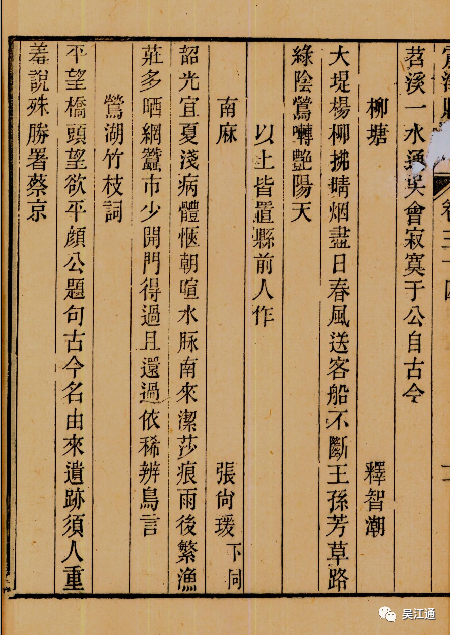 卷三十四
苕溪一水通吳會寂寞于公自古今
柳塘 釋智潮
大堤楊柳拂晴烟盡日春風送客船不斷王孫芳草路
綠陰鶯囀艷陽天
以上皆置縣前人作
南麻 張尙瑗 下同
韶光宜夏淺病體愜朝暄水脉南來潔莎痕雨後繁漁
莊多晒網蠶市少開門得過且還過依稀辨鳥言
鶯湖竹枝詞
平望橋頭望欲平顔公題句古今名由來遺跡須人重
羞說殊勝署蔡京
吴江通